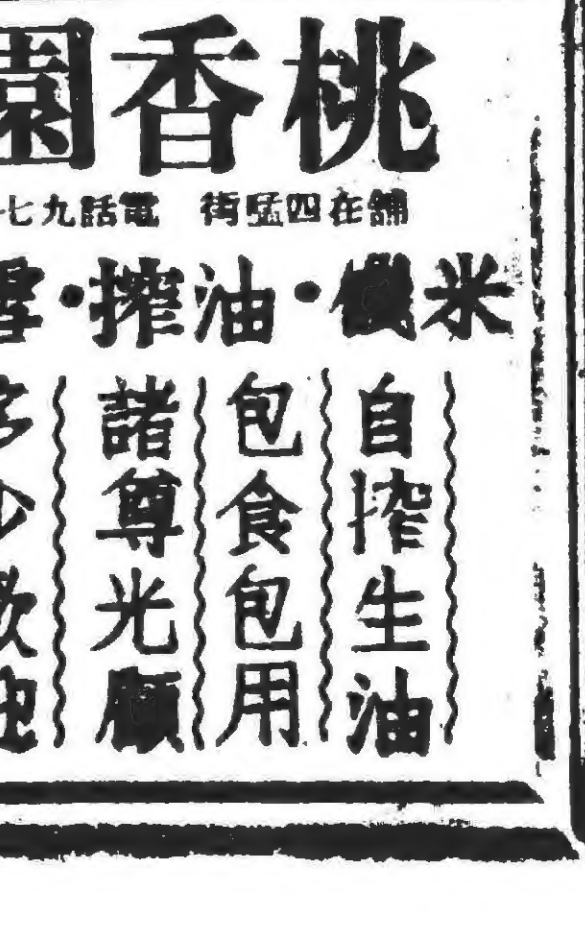 桃香園
舖在四猛街 電話九七
米機・油搾・雪
自搾生油
包食包用
諸尊光顧